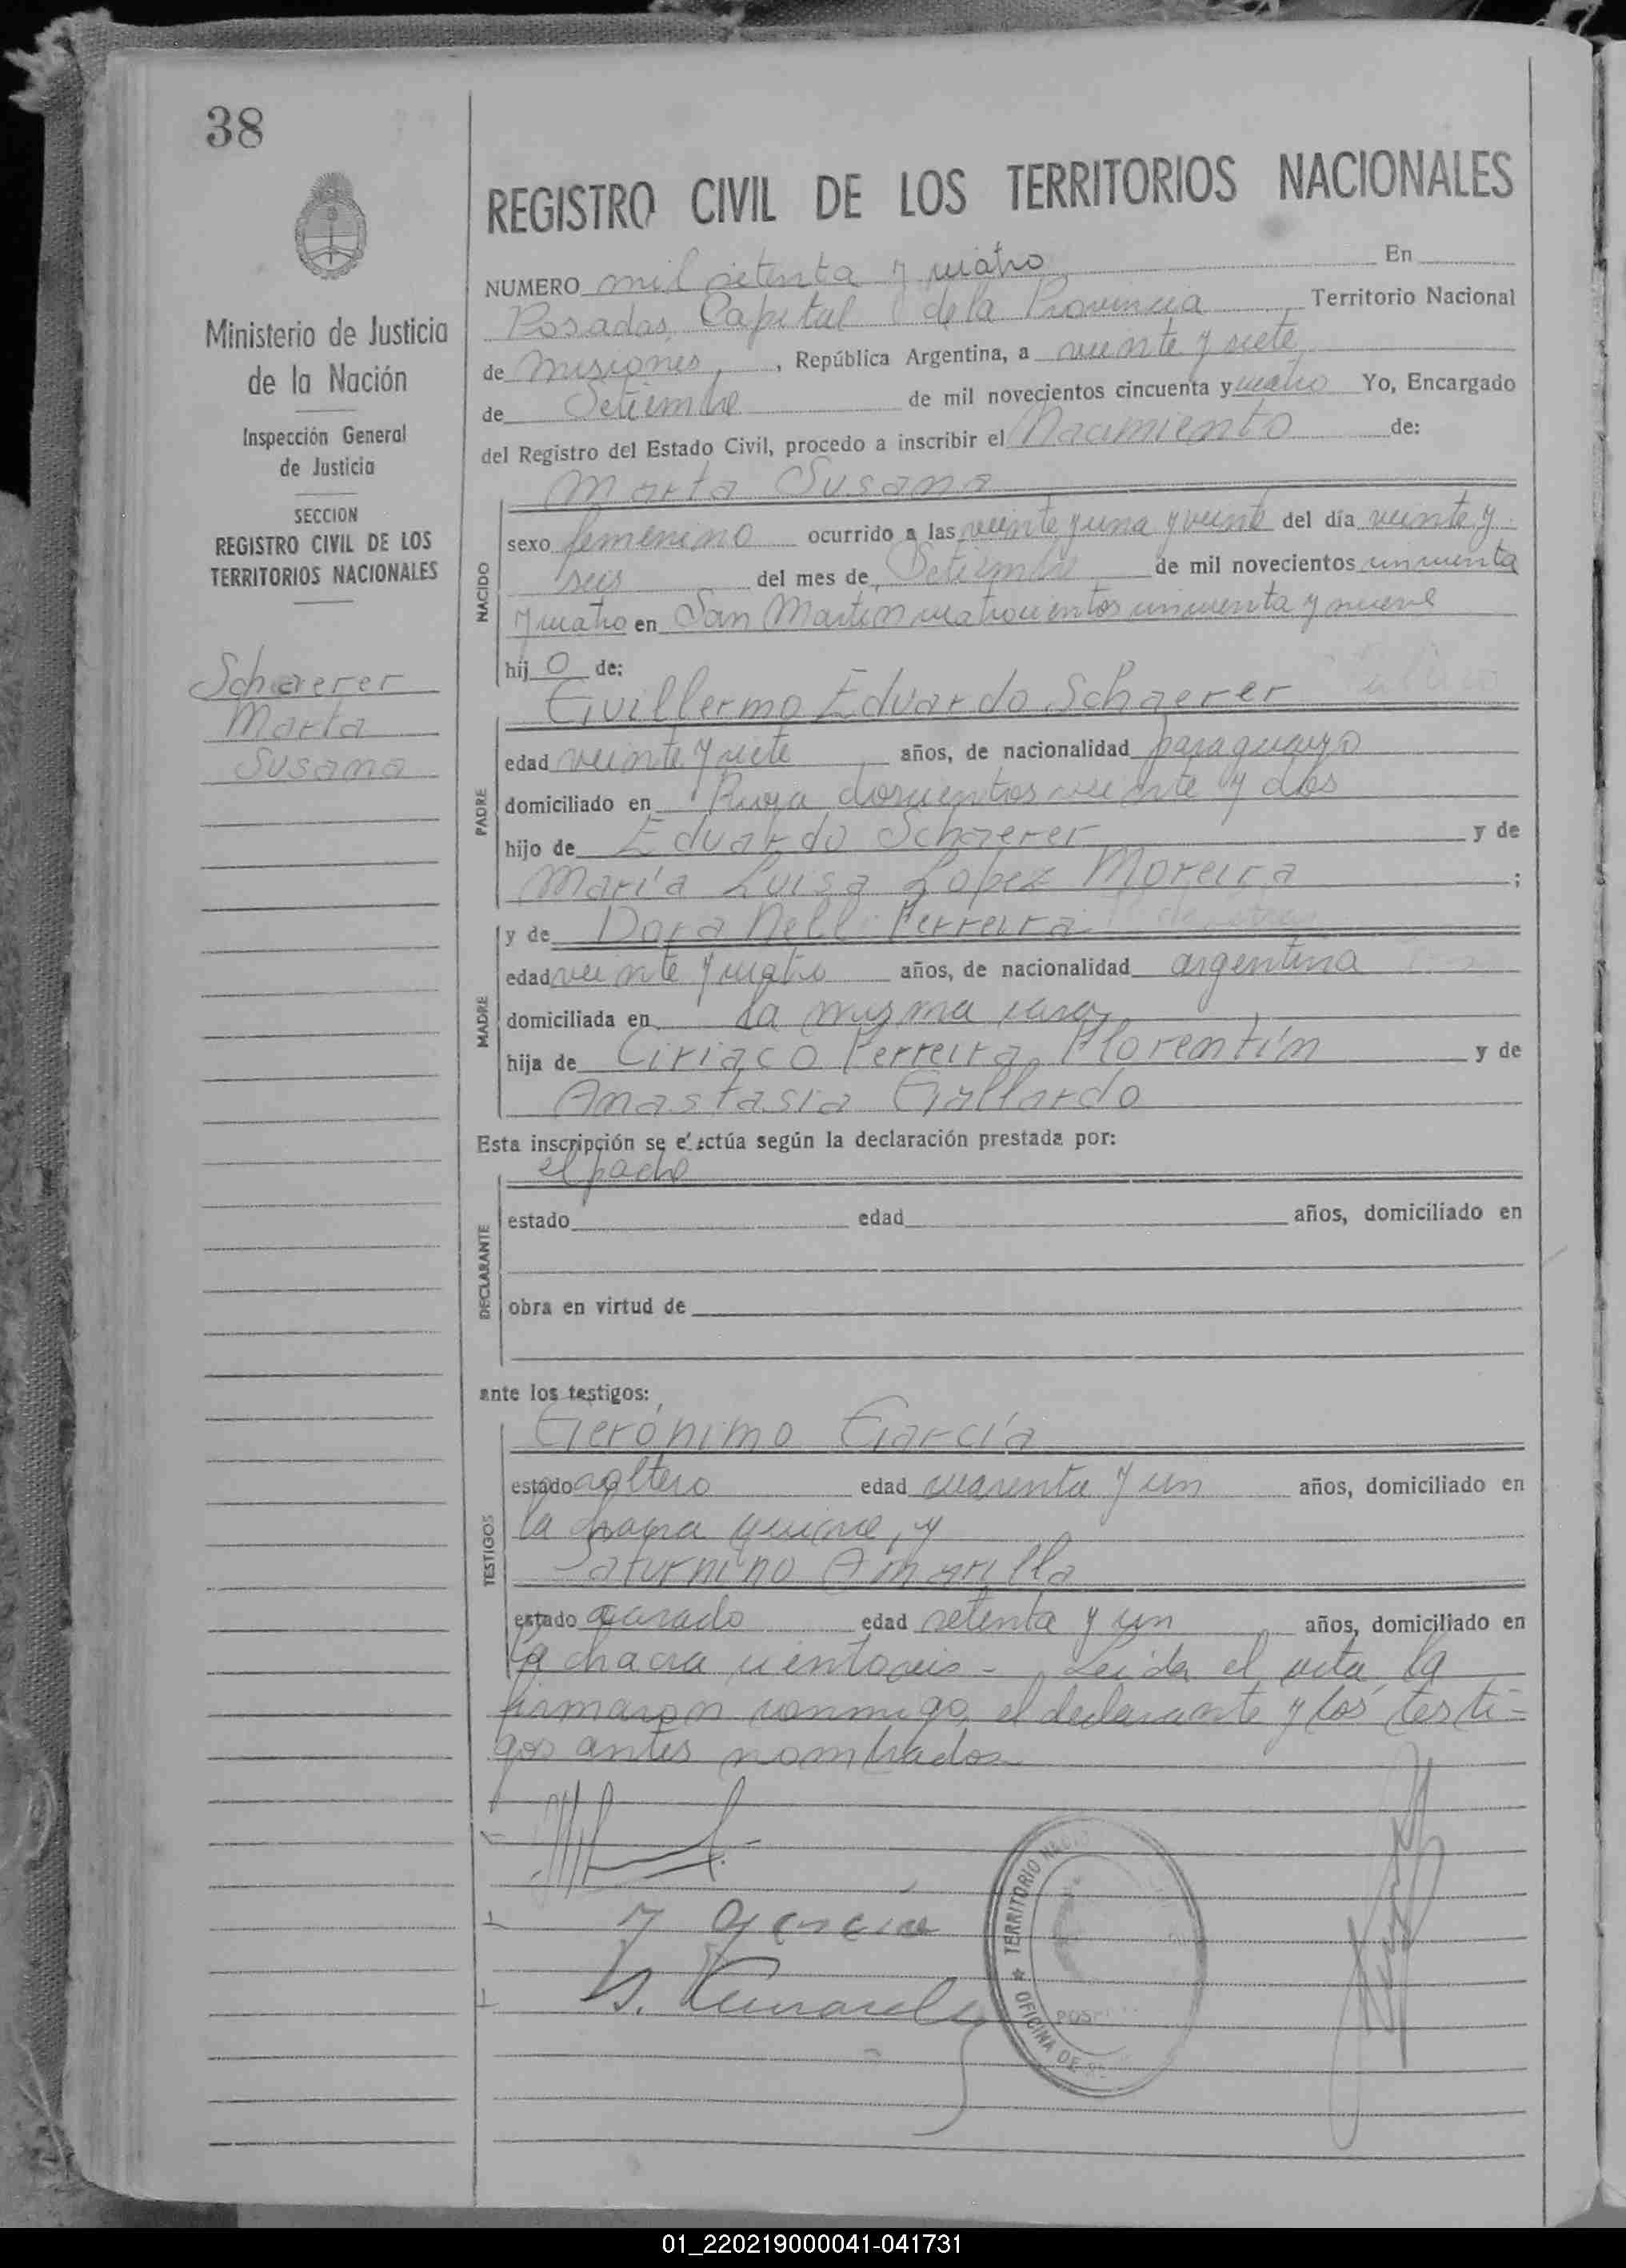 38
REGISTRO CIVIL DE LOS TERRITORIOS NACIONALES
Ministerio de Justicia
de la Nación
Inspección General
de Justicia
SECCION
REGISTRO CIVIL DE LOS
TERRITORIOS NACIONALES
Schaerer
Marta
Susana
NUMERO mil setenta y cuatro En
Posadas Capital de la Provincia Territorio Nacional
de Misiones, República Argentina, a veinte y siete
de Setiembre de mil novecientos cincuenta y cuatro Yo, Encargado
del Registro del Estado Civil, procedo a inscribir el Nacimiento de:
NACIDO
Marta Susana
sexo femenino ocurrido a las veinte y una y veinte del día veinte y
seis del mes de Setiembre de mil novecientos cincuenta
y cuatro en San Martin cuatrocientos cincuenta y nueve
hij o de:
PADRE
Guillermo Eduardo Schaerer
edad veinte y siete años, de nacionalidad paraguaya
domiciliado en Rioja doscientos veinte y dos
hijo de Eduardo Schaerer y de
María Luisa Lopez Moreira ;
MADRE
y de Dora Nelli Ferreira
edad veinte y cuatro años, de nacionalidad argentina
domiciliada en la misma casa
hija de Ciriaco Ferreira Florentín y de
Anastasia Gallardo
Esta inscripción se efectúa según la declaración prestada por:
DECLARANTE
el padre
estado edad años, domiciliado en
obra en virtud de
ante los testigos:
TESTIGOS
Gerónimo García
estado soltero edad cuarenta y un años, domiciliado en
la chacra quince, y
Saturnino Amarilla
estado casado edad setenta y un años, domiciliado en
la chacra ciento seis - Leida el acta, la
firmaron conmigo, el declarante y los testi-
gos antes nombrados
García
TERRITORIO NACIO
OFICINA DE
POS
01_220219000041-041731